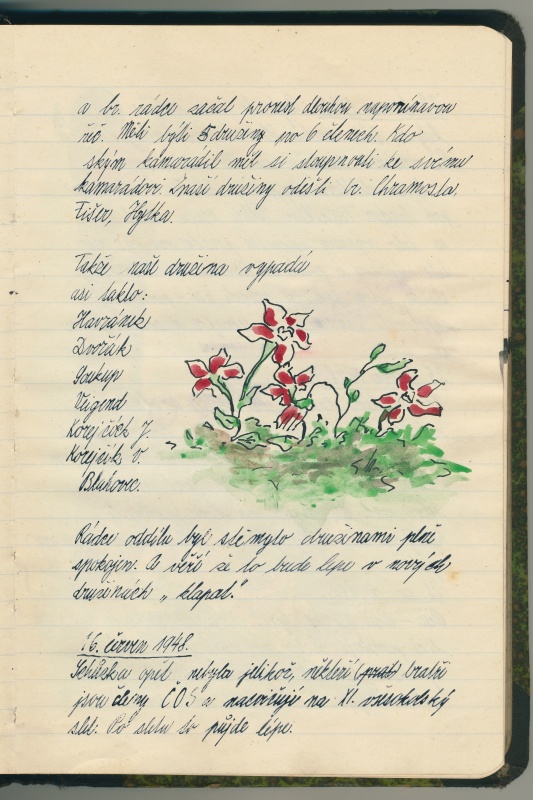 a br. rádce začal pronesl dlouhou napomínavou
řeč. Měli býli 5 družiny po 6 členech. Kdo
s kým kamarádil měl si stoupnouti ke svému
kamarádovi. Z naší družiny odešli br. Chramosta
Fišer, Hylka.
Takže naše družina vypadá
asi takto:
Havránek
Dvořák
Soukup
Weigend
Korejčík J.
Korejčík V.
Bluďovic.
Rádce oddílu byl stěmyto družinami plně
spokojen. A věří že to bude lépe v nových
družinách „klapat."
16. červen 1948.
Schůzka opět nebyla jelikož, někteří bratři
jsou členy ČOS a nacvičují na XI. všesokolský
slet. Po sletu to půjde lépe.